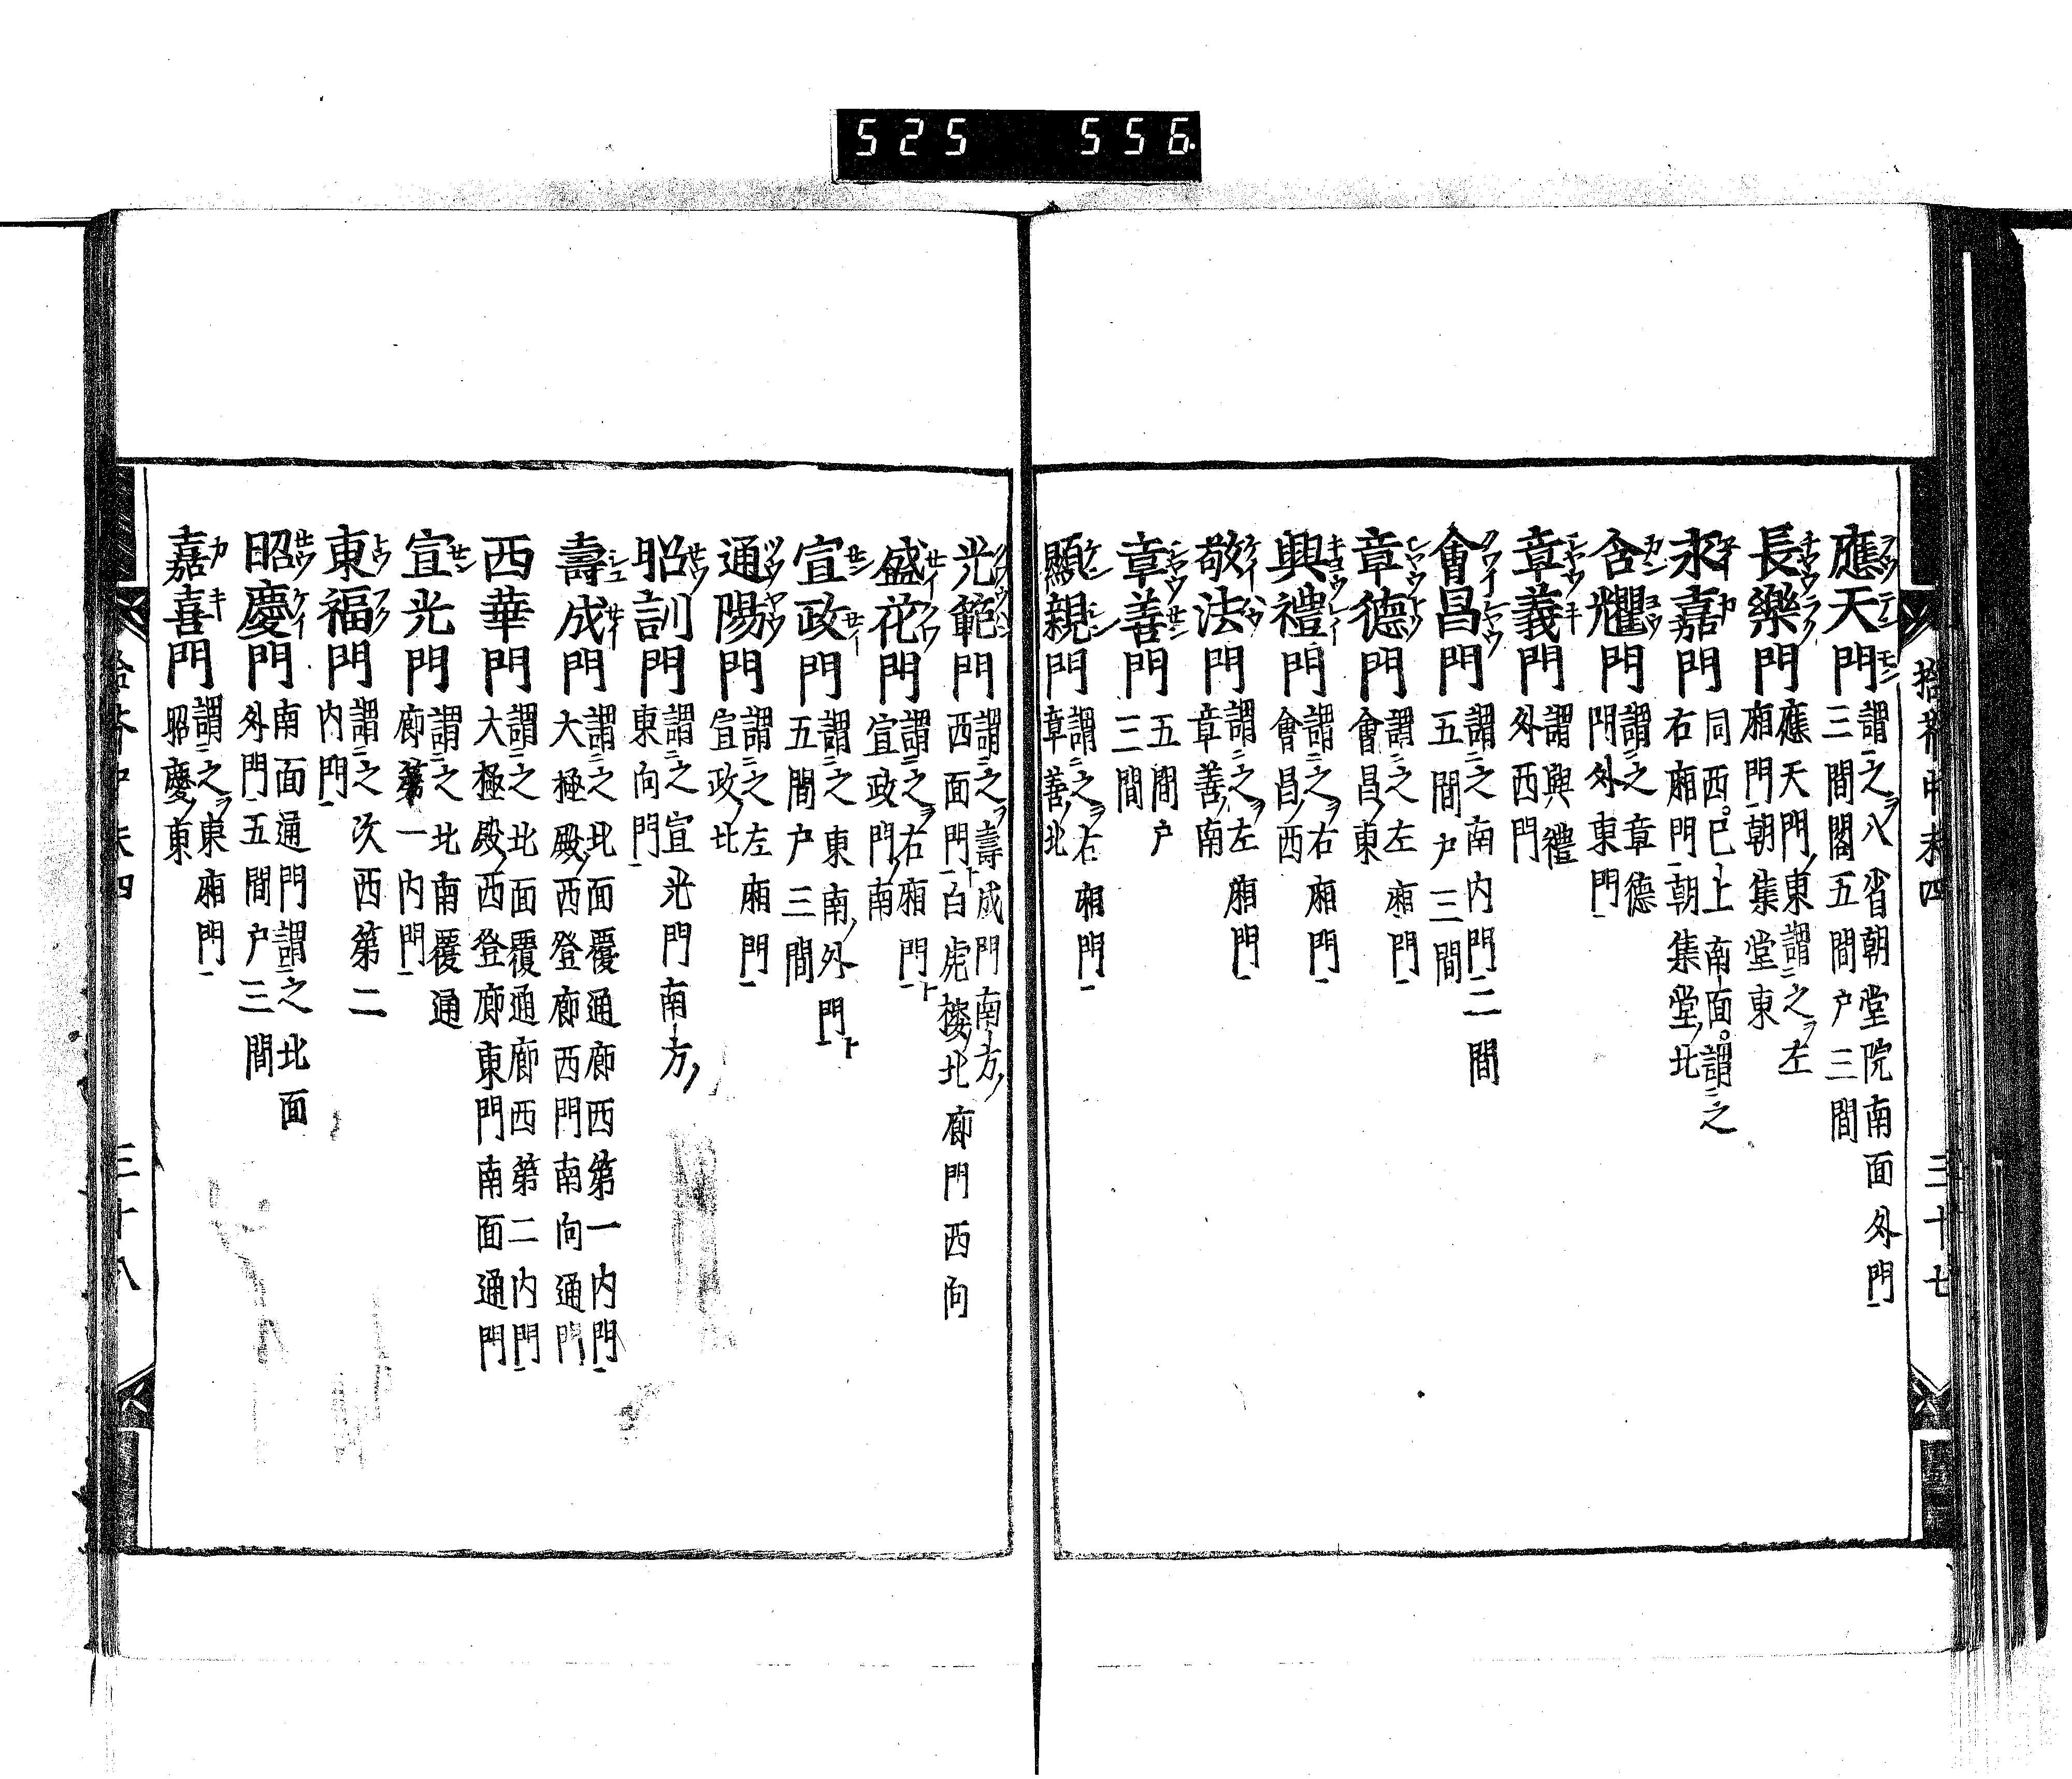 525 556.
拾芥中末四 三十七
應天門 謂之八省朝堂院南面外門 三間閣五間戸三間
長樂門 應天門東謂之左 廂門朝集堂東
永嘉門 同西。已上南面。謂之 右廂門朝集堂北
含耀門 謂之章德 門外東門
章義門 謂興禮 外西門
會昌門 謂之南内門二間 五間戸三間
章德門 謂之左廂門 會昌東
興禮門 謂之右廂門 會昌西
敬法門 謂之左廂門 章善南
章善門 五間戸 三間
顯親門 謂之右廂門 章善北
光範門 謂之壽成門南方 西面門白虎樓北廊門西向
盛花門 謂之右廂門 宣政門南
宣政門 謂之東南外門 五間戸三間
通陽門 謂之左廂門 宣政北
昭訓門 謂之宣光門南方 東向門
壽成門 謂之北面覆通廊西第一内門 大極殿西登廊西門南向通門
西華門 謂之北面覆通廊西第二内門 大極殿西登廊東門南面通門
宣光門 謂之北南覆通 廊第一内門
東福門 謂之次西第二 内門
昭慶門 南面通門謂之北面 外門五間戸三間
嘉喜門 謂之東廂門 昭慶東
三十八